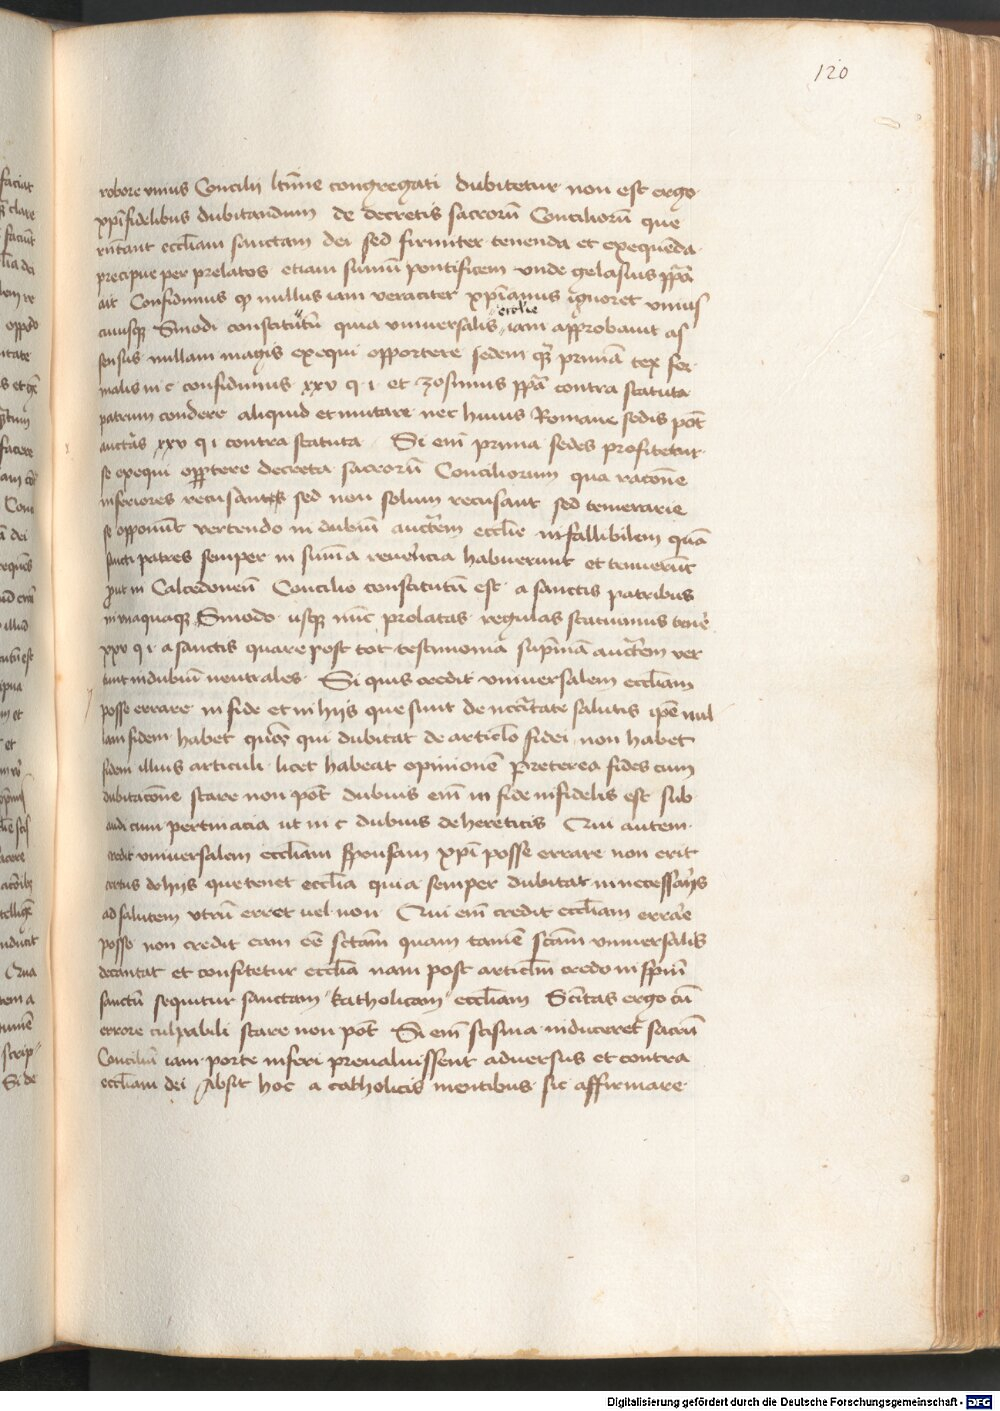 120
robore unius Concilii ltime congregati dubitetur non est ergo
xpifidelibus dubitandum de decretis sacrorū Conciliorū que
rūtant eccliam sanctam dei sed firmiter tenenda et exequēda
precipue per prelatos etiam sūmū pontificem unde gelasius pp̄a
ait Confidimus ꝙ nullus iam veraciter xp̄ianus ignoret unius
cuiusqꝫ Sinodi constitutū quia universalis ecclie iam approbavit as
sensus nullam magis exequi opportere sedem qꝫ primā tex for
malis in c confidimus xxv q 1 et zosimus pp̄a contra statuta
patrum condere aliquid et mutare nec huius Romane sedis pōt
auctās xxv q 1 contra statuta Si eim̄ prima sedes profitetur
se exequi opportere decreta sacrorū Conciliorum qua racōne
inferiores recusantes sed non solum recusant sed temerarie
se opponūt vertendo in dubiū auctēm ecclie infallibilem quā
sancti patres semper in sūma reverēcia habuerunt et tenuerūt
put in Calcedonen̄ Concilio constitutū est a sanctis patribus
in unaquaqꝫ Sinodo usqꝫ nūc prolatas regulas statuimus tenē
xxv q 1 a sanctis quare post tot testimonia supmā auctēm ver
tunt in dubiū neutrales Si quis credit universalem eccliam
posse errare in fide et in hijs que sunt de nccitate salutis ipē nul
lam fidem habet qui dubitat de articlo fidei non habet
fidem illius articuli licet habeat opinionē Preterea fides cum
dubitacōne stare non pōt dubius eim̄ in fide infidelis est sub
audi cum pertinacia ut in c dubius de hereticis Qui autem
credit universalem eccliam sponsam xp̄i posse errare non erit
certus de hijs que tenet ecclia quia semper dubitat in necessarijs
ad salutem utrū erret vel non Qui eim̄ credit eccliam errare
posse non credit eam eē sctam quam tamē sctam universalis
decantat et confitetur ecclia nam post articlm credo in sp̄m
sanctū sequitur sanctam katholicam eccliam Scitas ergo cū
errore culpabili stare non pōt Si eim̄ scisma induceret sacrū
Conciliū iam porte inferi prevaluissent adversus et contra
eccliam dei Absit hoc a catholicis mentibus sic affirmare
Digitalisierung gefördert durch die Deutsche Forschungsgemeinschaft - DFG